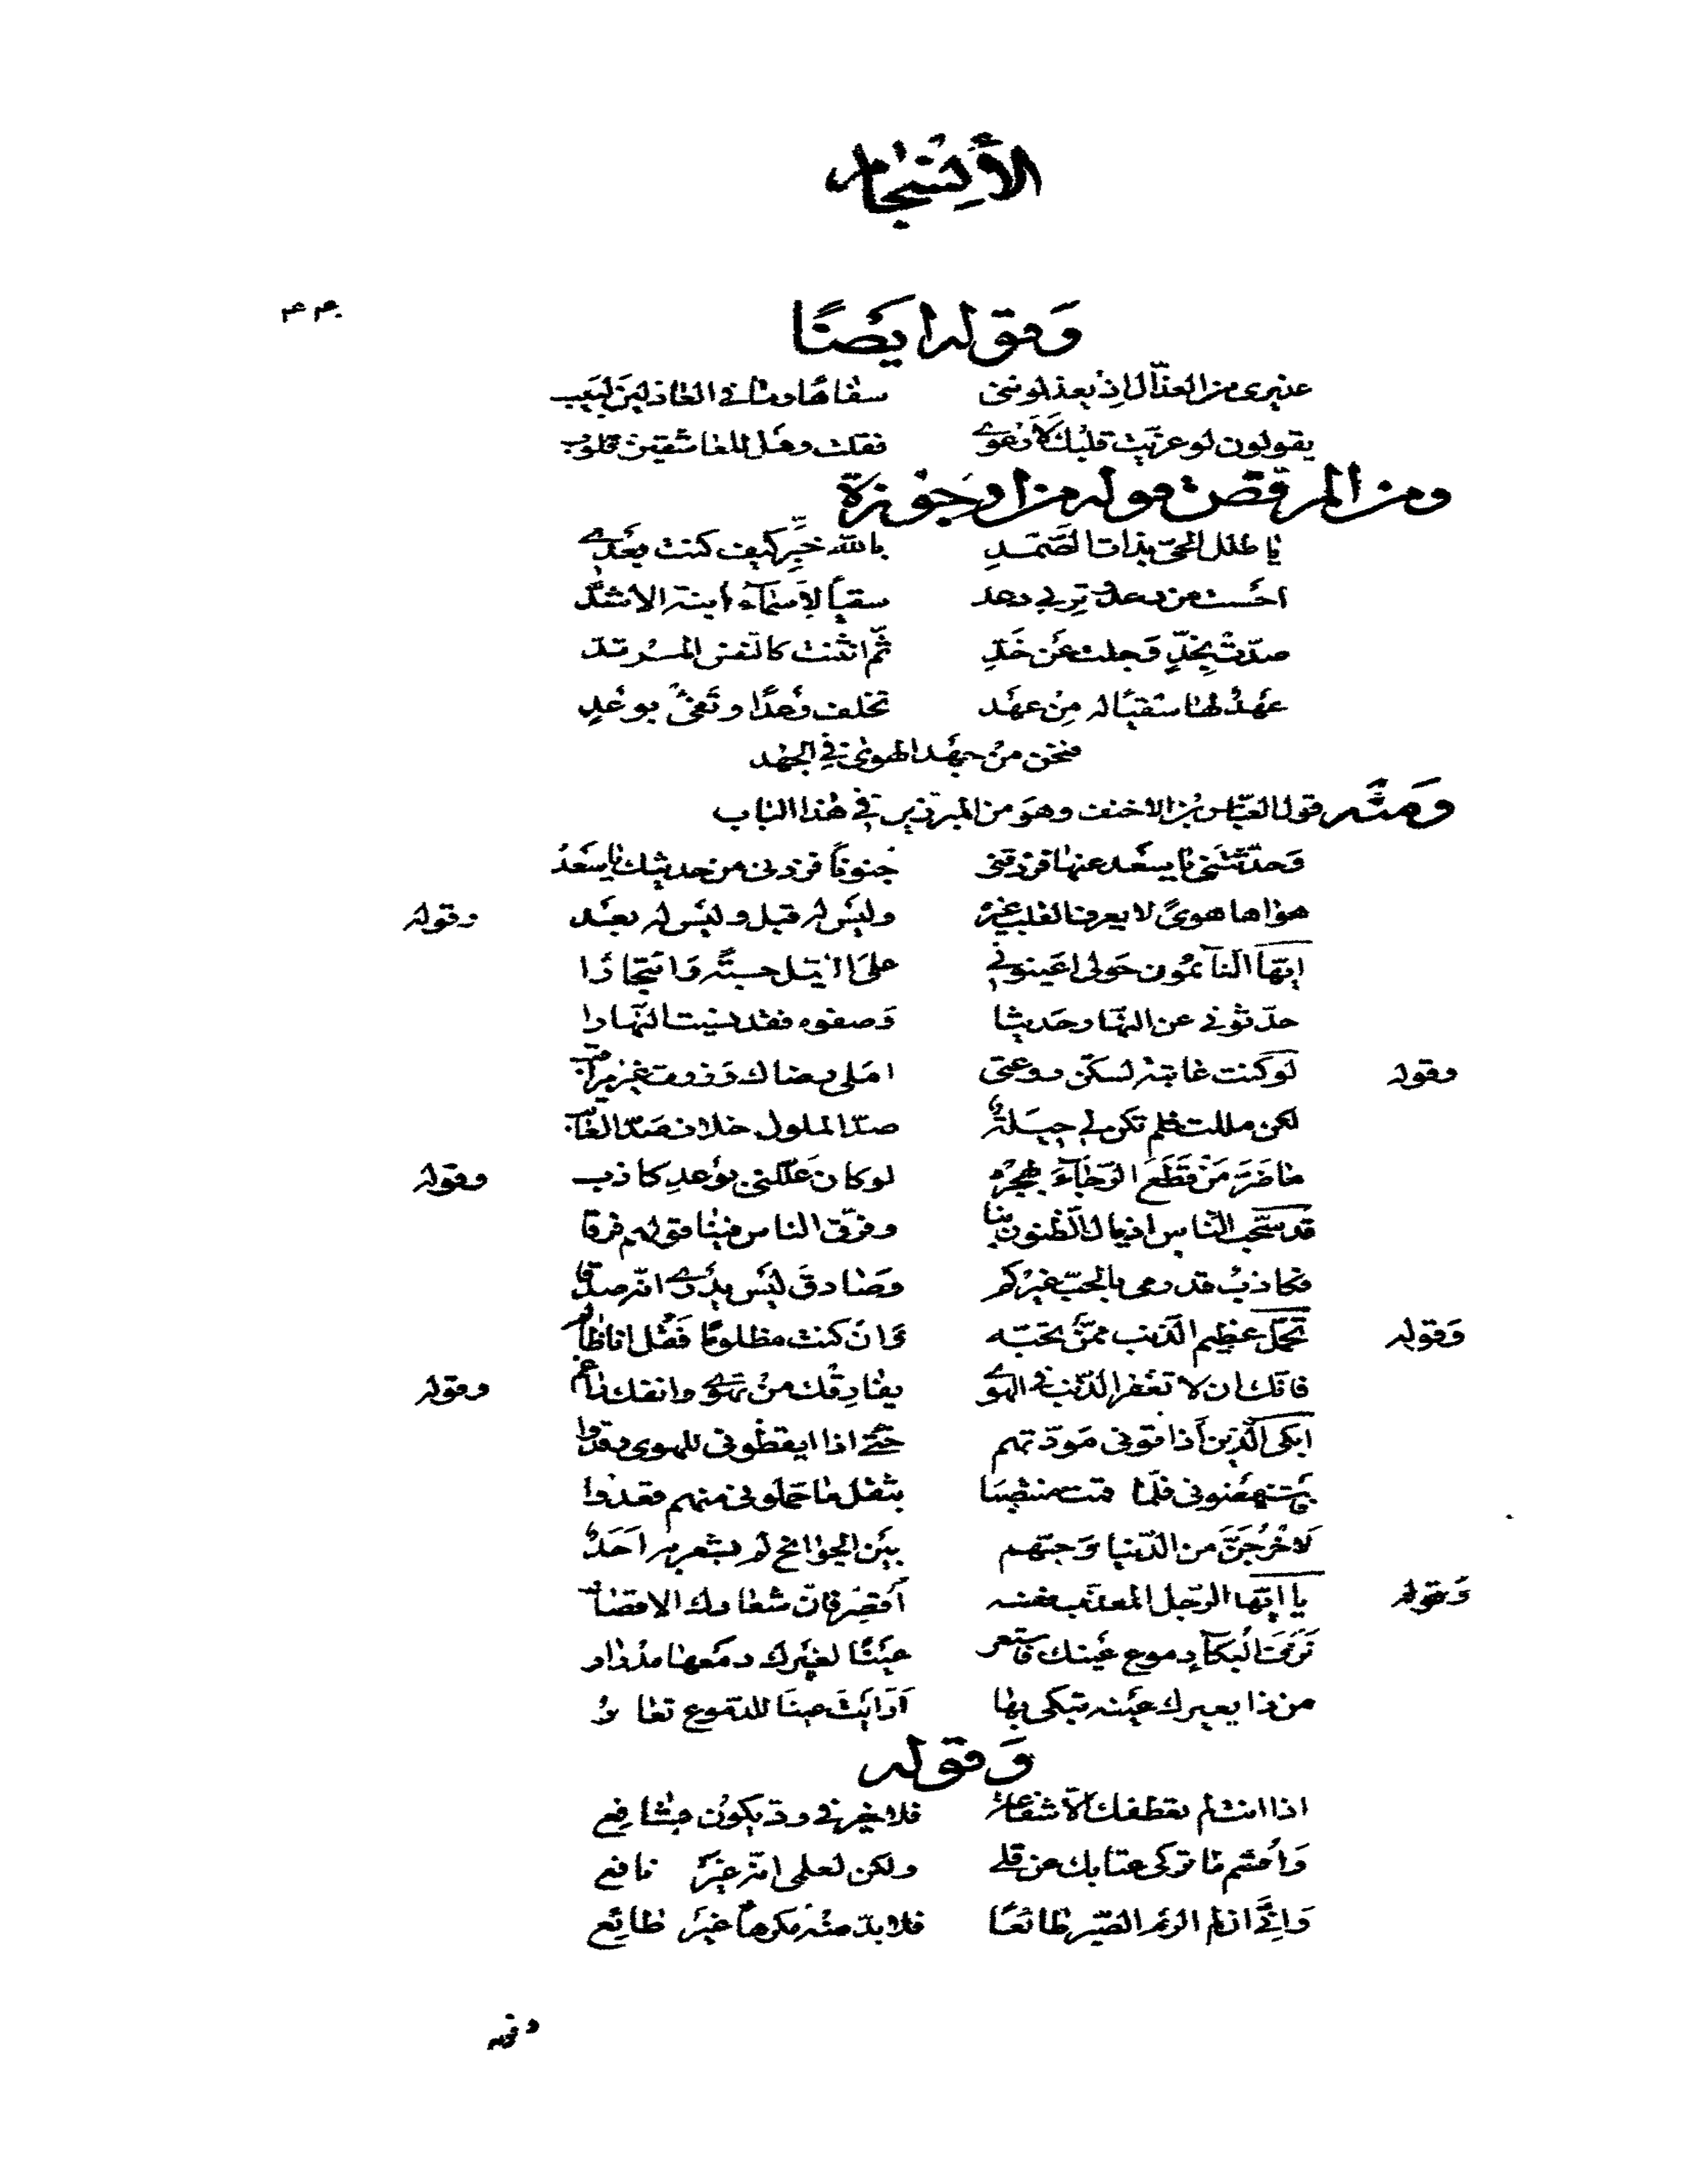 الأنسجام
وقوله ايضًا
عذيرى من العذّال اذ يعذلوننى سفاهًا وما فى العاذلين لبيب
يقولون لو عزّيت قلبك لارعوى فقلت وهل للعاشقين قلوب
ومن المرقص قوله من ارجوزة
يا طلل الحىّ بذات الصّمد بالله خبّر كيف كنت بعدى
اوحشت من دعد وترب دعد سقياً لاسمآء ابنة الاشدّ
صدّت بخدّ وجلت عن خدّ ثمّ انثنت كالنفس المرتدّ
عهد لها سقيًا له من عهد تخلف وعدًا وتفى بوعد
فنحن من جهد الهوى فى الجهد
ومنه قول العبّاس بن الاحنف وهو من المبرزين فى هذا الباب
وحدّثتنى يا سعد عنها فزدتنى جنوناً فزدنى من حديثك يا سعد
هواها هوىً لا يعرف القلب غيره وليس له قبل وليس له بعد وقوله
ايّها النآئمون حولى اعينونى على الليل حسبة وائتجارًا
حدّثونى عن النهار حديثا وصفوه فقد نسيت النهارا
وقوله لو كنت عاتبة لسكّن روعتى املى رضاك وزرت غير مراقب
لكن مللت فلم تكن لى حيلة صدّ الملول خلاف صدّ العاتب
ما ضرّ من قطع الرجآء بهجره لو كان علّلنى بوعد كاذب وقوله
قد سحّب النّاس اذيال الظنون بنا وفرّق الناس فينا قولهم فرقا
فكاذب قد رمى بالحبّ غيركم وصادق ليس يدرى انّه صدقا
وقوله تحمّل عظيم الذنب ممّن تحبّه وان كنت مظلومًا فقل انا ظالم
فانّك ان لا تغفر الذنب فى الهوى يفارقك من تهوى وانفك راغم وقوله
ابكى الّذين أذاقونى مودّتهم حتّى اذا ايقظونى للهوى رقدوا
واستنهضونى فلمّا قمت منتصبا بثقل ما حمّلونى منهم قعدوا
لاخرجنّ من الدّنيا وحبّهم بين الجوانح لم يشعر به احد
وقوله يا ايّها الرّجل المعذّب نفسه أقصر فانّ شفاءك الاقصار
نزف البكآء دموع عينك فاستعر عينًا لغيرك دمعها مدرار
من ذا يعيرك عينه تبكى بها أرأيت عينا للدموع تعار
وقوله
اذا انت لم تعطفك الّا شفاعة فلا خير فى ودّ يكون بشافع
وأقسم ما تركى عتابك عن قلى ولكن لعلمى انّه غير نافع
وانّى اذا لم الزم الصّبر طائعًا فلا بدّ منه مكرهاً غير طائع
وقوله